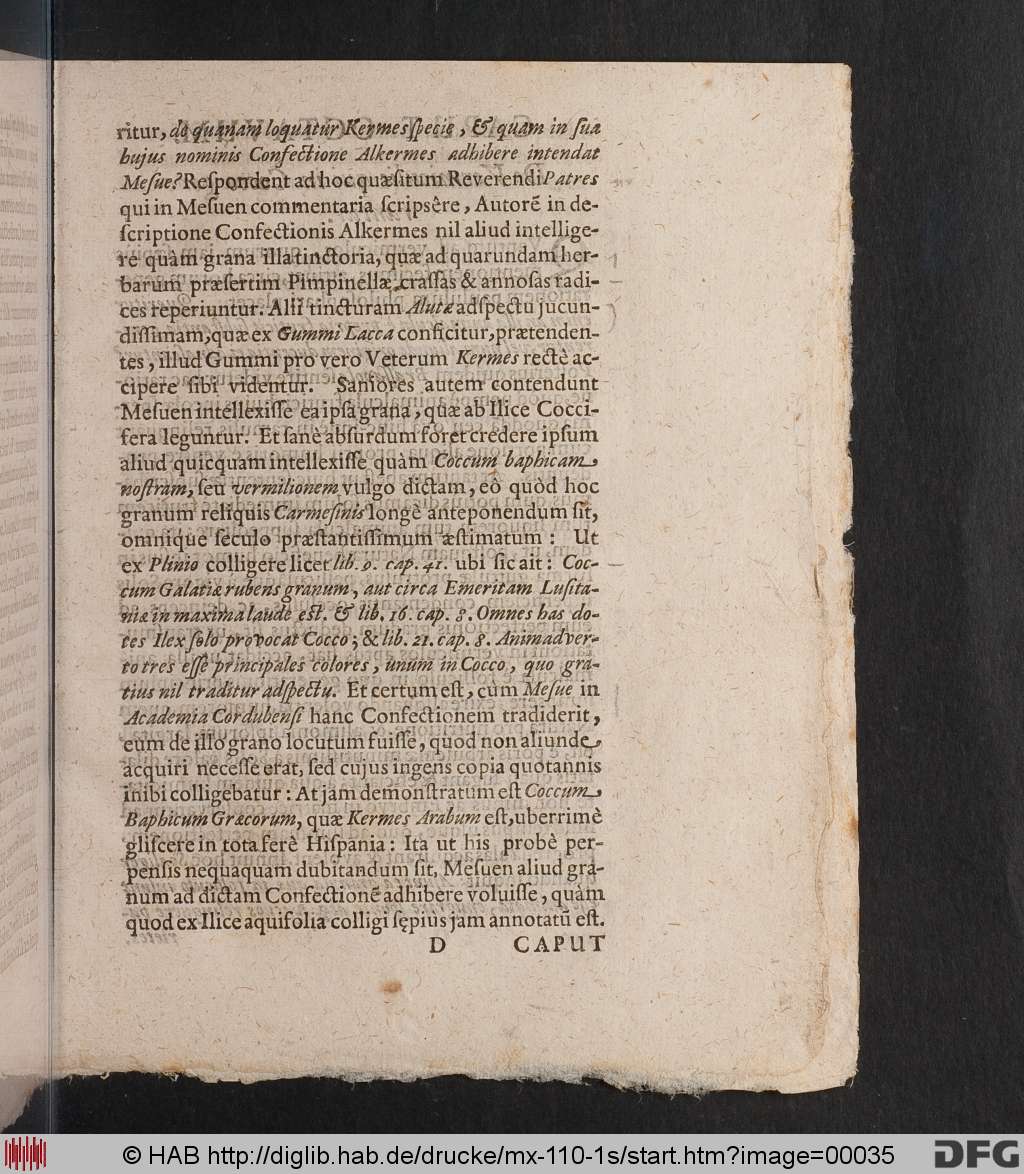 ritur, de quanam loquatur Kermes ſpecie, & quam in ſua
hujus nominis Confectione Alkermes adhibere intendat
Meſue? Reſpondent ad hoc quæſitum Reverendi Patres
qui in Meſuen commentaria ſcripsêre, Autorē in de-
ſcriptione Confectionis Alkermes nil aliud intellige-
re quàm grana illa tinctoria, quæ ad quarundam her-
barum præſertim Pimpinellæ craſſas & annoſas radi-
ces reperiuntur. Alii tincturam Alutæ adſpectu jucun-
diſſimam, quæ ex Gummi Lacca conficitur, prætenden-
tes, illud Gummi pro vero Veterum Kermes rectè ac-
cipere ſibi videntur. Saniores autem contendunt
Meſuen intellexiſſe ea ipſa grana, quæ ab Ilice Cocci-
fera leguntur. Et ſanè abſurdum foret credere ipſum
aliud quicquam intellexiſſe quàm Coccum baphicam
noſtram, ſeu vermilionem vulgo dictam, eô quòd hoc
granum reliquis Carmeſinis longè anteponendum ſit,
omnique ſeculo præſtantiſſimum æſtimatum: Ut
ex Plinio colligere licet lib. 9. cap. 41. ubi ſic ait: Coc-
cum Galatiæ rubens granum, aut circa Emeritam Luſita-
niæ in maxima laude eſt. & lib. 16. cap. 8. Omnes has do-
tes Ilex ſolo provocat Cocco; & lib. 21. cap. 8. Animadver-
to tres eſſe principales colores, unum in Cocco, quo gra-
tius nil traditur adſpectu. Et certum eſt, cùm Meſue in
Academia Cordubenſi hanc Confectionem tradiderit,
eum de illo grano locutum fuiſſe, quod non aliunde
acquiri neceſſe erat, ſed cujus ingens copia quotannis
inibi colligebatur: At jam demonſtratum eſt Coccum
Baphicum Græcorum, quæ Kermes Arabum eſt, uberrimè
gliſcere in tota ferè Hiſpania: Ita ut his probè per-
penſis nequaquam dubitandum ſit, Meſuen aliud gra-
num ad dictam Confectionē adhibere voluiſſe, quàm
quod ex Ilice aquifolia colligi ſępiùs jam annotatū eſt.
D CAPUT
© HAB http://diglib.hab.de/drucke/mx-110-1s/start.htm?image=00035
DFG